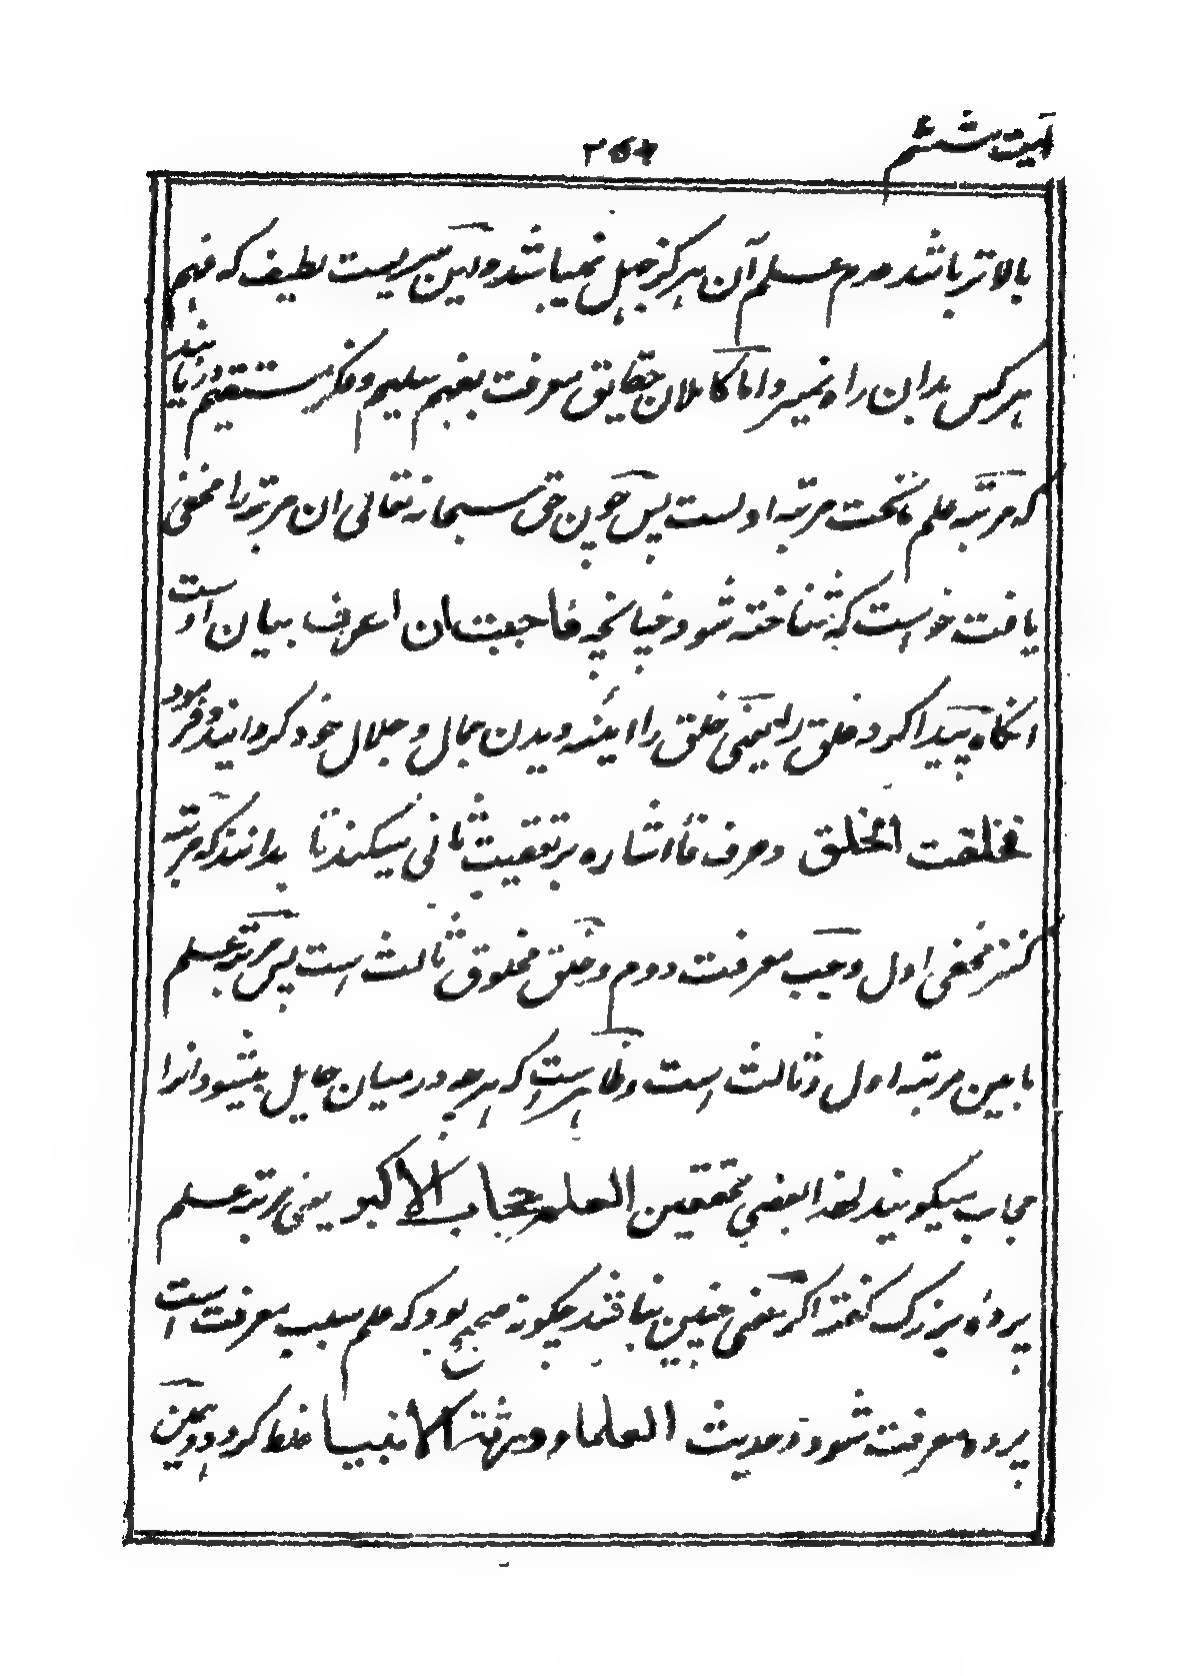 آیت ششم
بالاتر باشد عدم علم آن هرگز جهل نمیباشد و این سریست لطیف که فهم
هر کس بدان راه نمیبرد اما کاملان حقایق معرفت بفهم سلیم و فکر مستقیم دریابند
که مرتبه علم تحت مرتبه اوست پس چون حق سبحانه تعالی ان مرتبه را مخفی
یافت خواست که شناخته شود چنانچه فاحببت ان اعرف بیان اوست
انگاه پیدا کرد خلق را یعنی خلق را ائینه دیدن جمال و جلال خود گردانید و فرمود
فخلقت الخلق و حرف فا اشاره بر تعقیب ثانی میکند تا بدانند که مرتبه
کنز مخفی اول و حب معرفت دوم و خلق مخلوق ثالث است پس مرتبه علم
مابین مرتبه اول و ثالث است و ظاهر است که هرچه در میان حایل میشود انرا
حجاب میگویند لهذا بعضی محققین العلم حجاب الاکبر یعنی مرتبه علم
پرده بزرگ گفته اگر معنی چنین نباشد چگونه صحیح بود که علم سبب معرفت است
پرده معرفت شود و حدیث العلماء ورثة الانبیا غلط گردد و همین